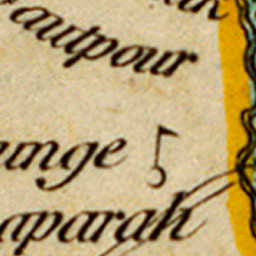 autpour
unge
aparah